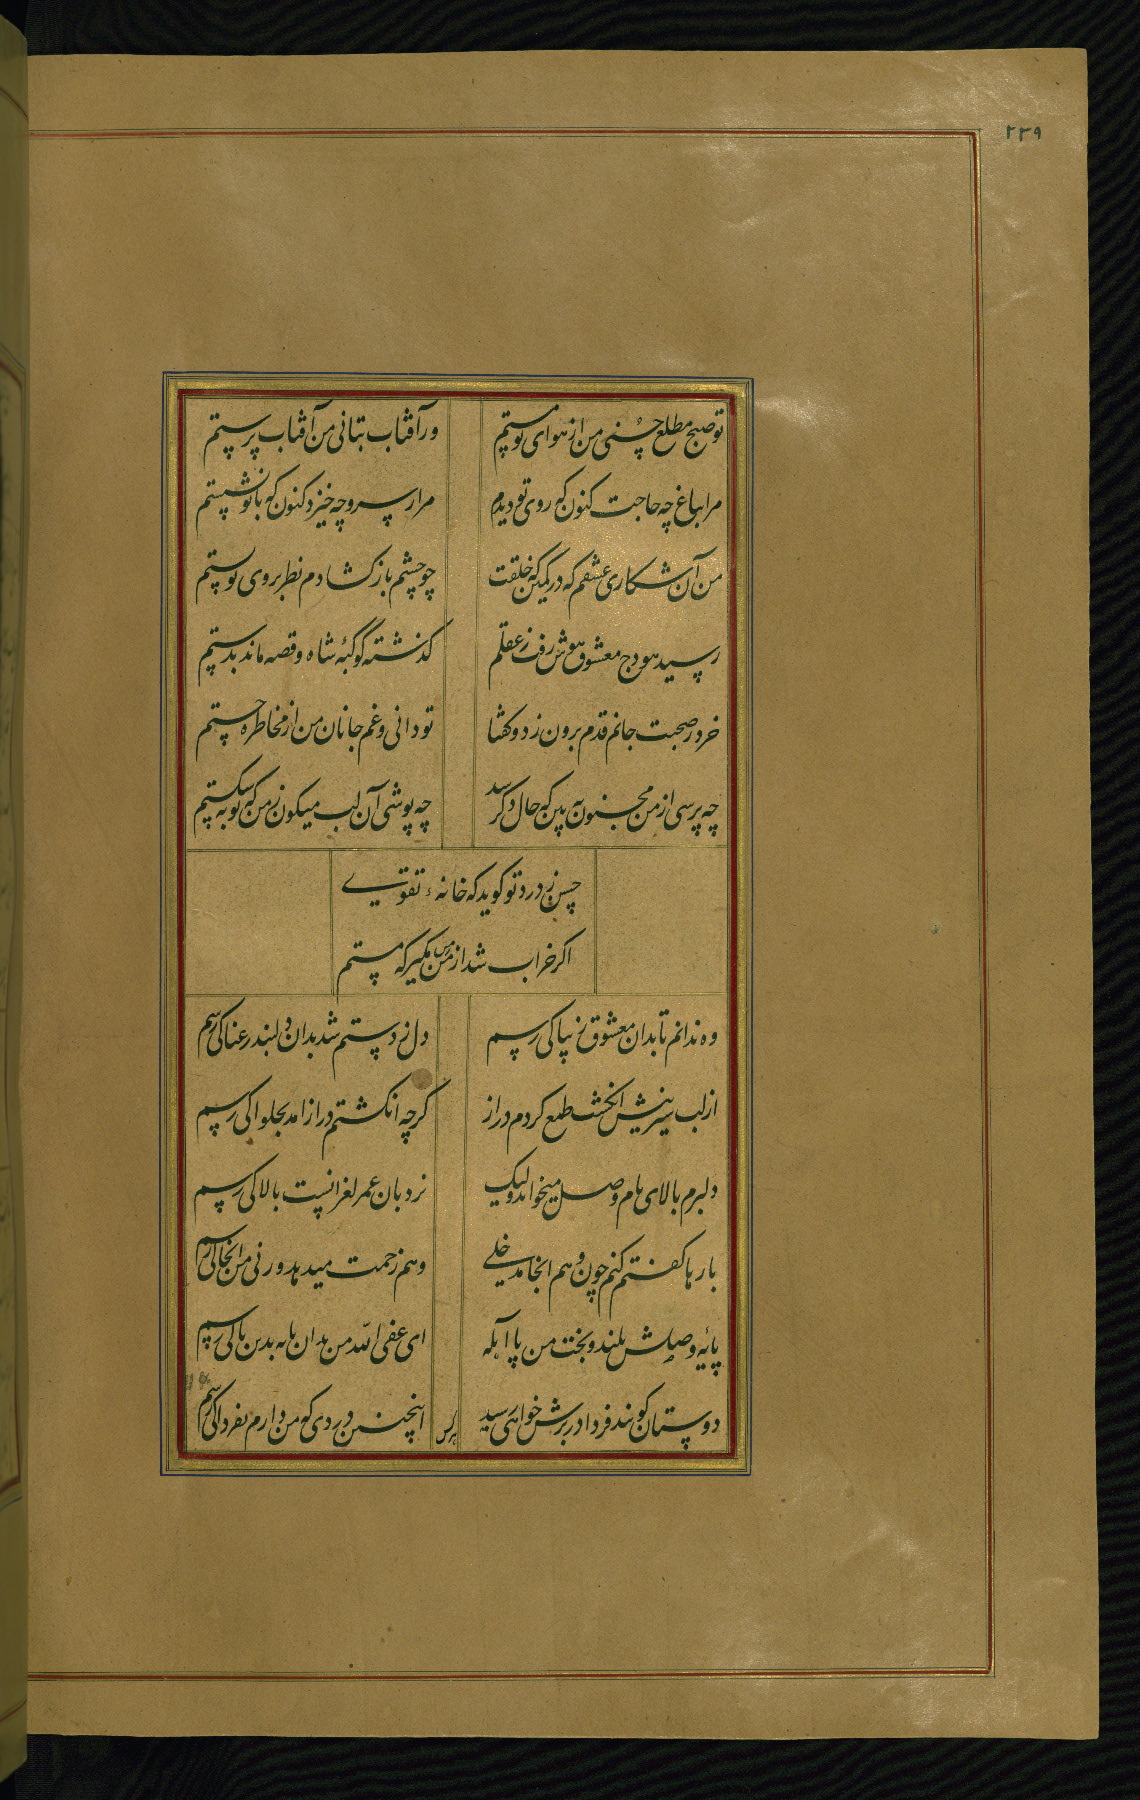 ٢٣٩
تو صبح مطلع حسنی من از هوای تو مستم
ور آفتاب بتانی من آفتاب پرستم
مرا بباغ چه حاجت کنون که روی تو دیدم
مرا ز سرو چه خیزد کنون که با تو نشستم
من آن شکاری عشقم که در کمین که خلقت
چو چشم باز کشادم نظر بروی تو بستم
رسید هودج معشوق هوش رفت ز عقلم
کذشته کوکبهٔ شاه و قصه ماند بدستم
خرد ز صحبت جانم قدم برون زد و کفتا
تو دانی و غم جانان من از مخاطره جستم
چه پرسی از من مجنون به بین که حال دکر شد
چه پوشی آن لب میکون ز من که توبه شکستم
حسن ز درد تو کوید که خانهٔ تقوی
اکر خراب شد از من مکیر که مستم
وه ندانم تا بدان معشوق زیبا کی رسم
دل ز دستم شد بدان دلبند رعنا کی رسم
از لب شیرینش انکشت طمع کردم دراز
کرچه انکشتم دراز امد بحلوا کی رسم
دلبرم بالای بام وصل میخواند ولیک
نردبان عمر لغزانست بالا کی رسم
بارها کفتم کنم چون وهم انجا مدخلی
وهم زحمت میدهد ورنی من انجا کی رسم
پایهٔ وصلش بلند و بخت من پا آبله
ای عفی الله من بدان پایه بدین پا کی رسم
دوستان کویند فردا در برش خواهی رسید
اینچنین دردی که من دارم بفردا کی رسم